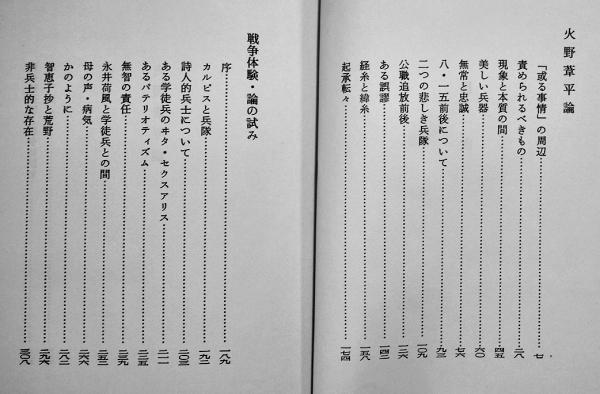 火野葦平論
「或る事情」の周辺……七
責められるべきもの……二八
現象と本質の間……四五
美しい兵器……六〇
無常と忠誠……七六
八・一五前後について……九三
二つの悲しき兵隊……一〇九
公職追放前後……一二六
ある誤謬……一四二
経糸と緯糸……一五八
起承転々……一七四
戦争体験・論の試み
序……一八九
カルピスと兵隊……一九二
詩人的兵士について……二〇三
ある学徒兵のヰタ・セクスアリス……二一一
あるパテリオティズム……二二五
無智の責任……二三九
永井荷風と学徒兵との間……二五二
母の声・病気……二六六
かのように……二八二
智恵子抄と荒野……二九六
非兵士的な存在……三〇八